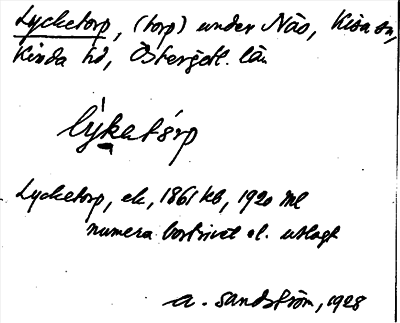 Lycketorp, (torp) under Näs, Kisa sn,
Kinda hd, Östergötl. län
lỳketórp
Lycketorp, ek, 1861 kb, 1920 ml
numera bortrivet el. utlagt
A. Sandström, 1928